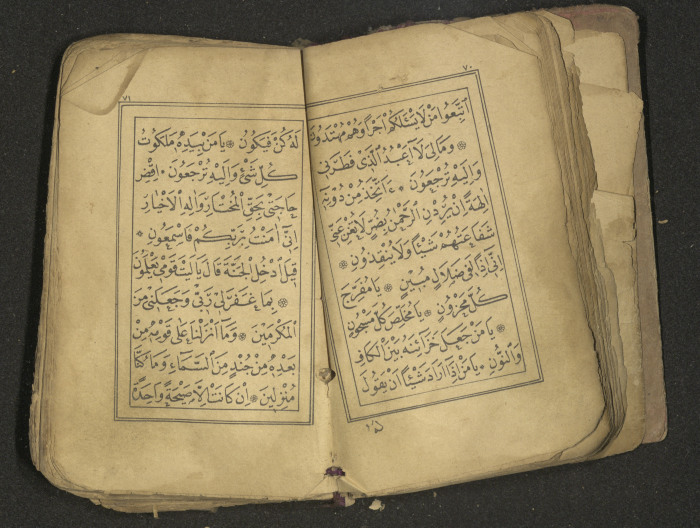 ٧٠
اتَّبِعُوا مَنْ لَا يَسْئَلُكُمْ اَجْرًا وَهُمْ مُهْتَدُونَ
۞ وَمَا لِيَ لَا اَعْبُدُ الَّذِي فَطَرَنِي
وَاِلَيْهِ تُرْجَعُونَ ۞ ءَاَتَّخِذُ مِنْ دُونِهِ
اٰلِهَةً اِنْ يُرِدْنِ الرَّحْمٰنُ بِضُرٍّ لَا تُغْنِ عَنِّي
شَفَاعَتُهُمْ شَيْئًا وَلَا يُنْقِذُونِ ۞
اِنِّي اِذًا لَفِي ضَلَالٍ مُبِينٍ ۞ يَا مُفَرِّجَ
كُلِّ مَحْزُونٍ ۞ يَا مُخَلِّصَ كُلِّ مَسْجُونٍ
۞ يَا مَنْ جَعَلَ خَزَائِنَهُ بَيْنَ الْكَافِ
وَالنُّونِ ۞ يَا مَنْ اِذَا اَرَادَ شَيْئًا اَنْ يَقُولَ
٧١
لَهُ كُنْ فَيَكُونُ ۞ يَا مَنْ بِيَدِهِ مَلَكُوتُ
كُلِّ شَيْءٍ وَاِلَيْهِ تُرْجَعُونَ ۞ اِقْضِ
حَاجَتِي بِحَقِّ الْمُخْتَارِ وَاٰلِهِ الْاَخْيَارِ
اِنِّي اٰمَنْتُ بِرَبِّكُمْ فَاسْمَعُونِ ۞
قِيلَ ادْخُلِ الْجَنَّةَ قَالَ يَا لَيْتَ قَوْمِي يَعْلَمُونَ
۞ بِمَا غَفَرَ لِي رَبِّي وَجَعَلَنِي مِنَ
الْمُكْرَمِينَ ۞ وَمَا اَنْزَلْنَا عَلٰى قَوْمِهِ مِنْ
بَعْدِهِ مِنْ جُنْدٍ مِنَ السَّمَاءِ وَمَا كُنَّا
مُنْزِلِينَ ۞ اِنْ كَانَتْ اِلَّا صَيْحَةً وَاحِدَةً